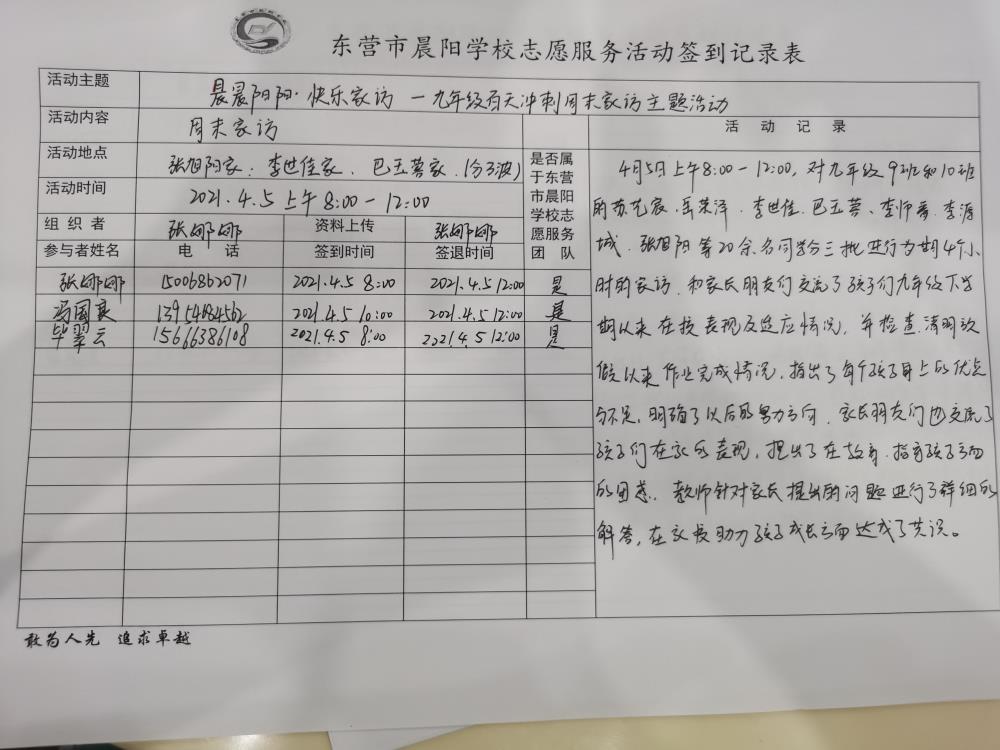 东营市晨阳学校志愿服务活动签到记录表
活动主题 晨晨阳阳·快乐家访 一九年级百天冲刺周末家访主题活动
活动内容 周末家访
活动地点 张旭阳家、李世佳家、巴玉蓉家
活动时间 2021.4.5 上午 8:00-12:00
组织者 张娜娜 资料上传 张娜娜
参与者姓名 电话 签到时间 签退时间
是否属
于东营
市晨阳
学校志
愿服务
团队
张娜娜 15006862071 2021.4.5 8:00 2021.4.5 12:00 是
冯国良 13954684562 2021.4.5 10:00 2021.4.5 12:00 是
毕翠云 15666386108 2021.4.5 8:00 2021.4.5 12:00 是
活动记录
4月5日上午8:00-12:00,对九年级9班和10班
的苏艺宸、岳荣泽、李世佳、巴玉蓉、李师
城、张旭阳等20余名同学分三批进行为期4个小
时的家访,和家长朋友们交流了孩子们九年级下学
期以来在校表现及适应情况,并检查清明放
假以来作业完成情况,指出了每个孩子身上的优点
与不足,明确了以后的努力方向,家长朋友们也交流了
孩子们在家的表现,提出了在教育、指育孩子方面
的困惑,教师针对家长提出的问题进行了详细的
解答,在家校助力孩子成长方面达成了共识。
敢为人先 追求卓越